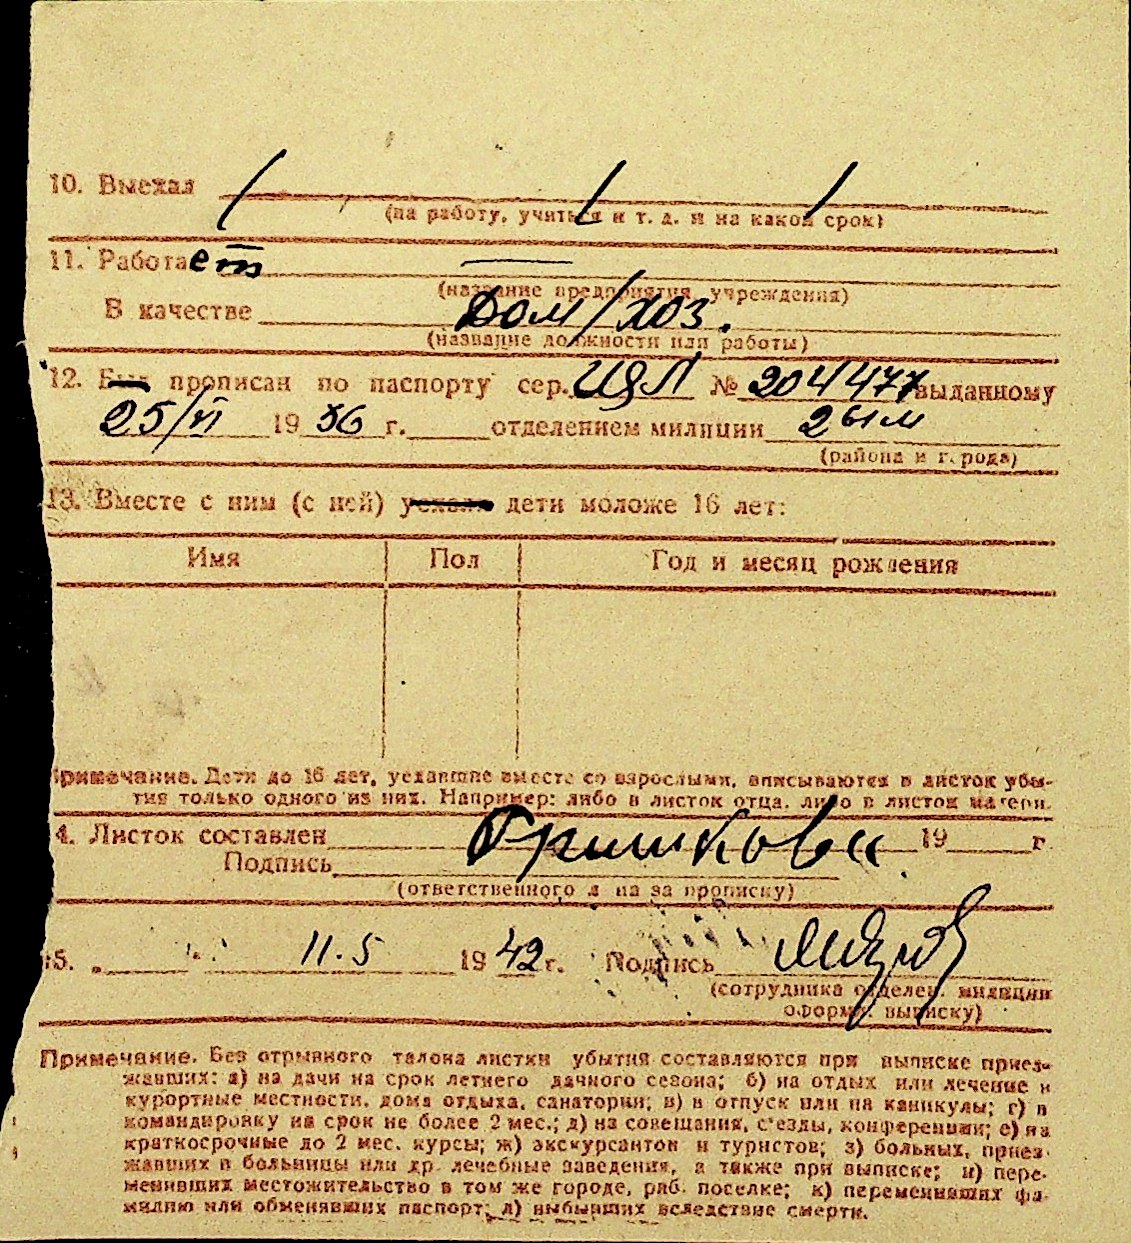 10. Выехал
(на работу, учиться и т. д. и на какой срок)
11. Работает —
(название предприятия, учреждения)
В качестве Дом/хоз.
(название должности или работы)
12. Был прописан по паспорту сер. ИЯЛ № 204477 выданному
25/VI 1936 г. отделением милиции 2ым
(района и города)
13. Вместе с ним (с ней) уехали дети моложе 16 лет:
Имя Пол Год и месяц рождения
Примечание. Дети до 16 лет, уехавшие вместе со взрослыми, вписываются в листок убы-
тия только одного из них. Например: либо в листок отца, либо в листок матери.
4. Листок составлен Гришкова 19 г
Подпись
(ответственного л на за прописку)
15. " " 11.5 1942 г. Подпись
(сотрудника отделен. милиции
оформ. выписку)
Примечание. Без отрывного талона листки убытия составляются при выписке приез-
жавших: а) на дачи на срок летнего дачного сезона; б) на отдых или лечение в
курортные местности, дома отдыха, санатории; в) в отпуск или на каникулы; г) в
командировку на срок не более 2 мес.; д) на совещания, с'езды, конференции; е) на
краткосрочные до 2 мес. курсы; ж) экскурсантов и туристов; з) больных, приез-
жавших в больницы или др. лечебные заведения, а также при выписке; и) пере-
менивших местожительство в том же городе, раб. поселке; к) переменивших фа-
милию или обменявших паспорт; л) выбывших вследствие смерти.